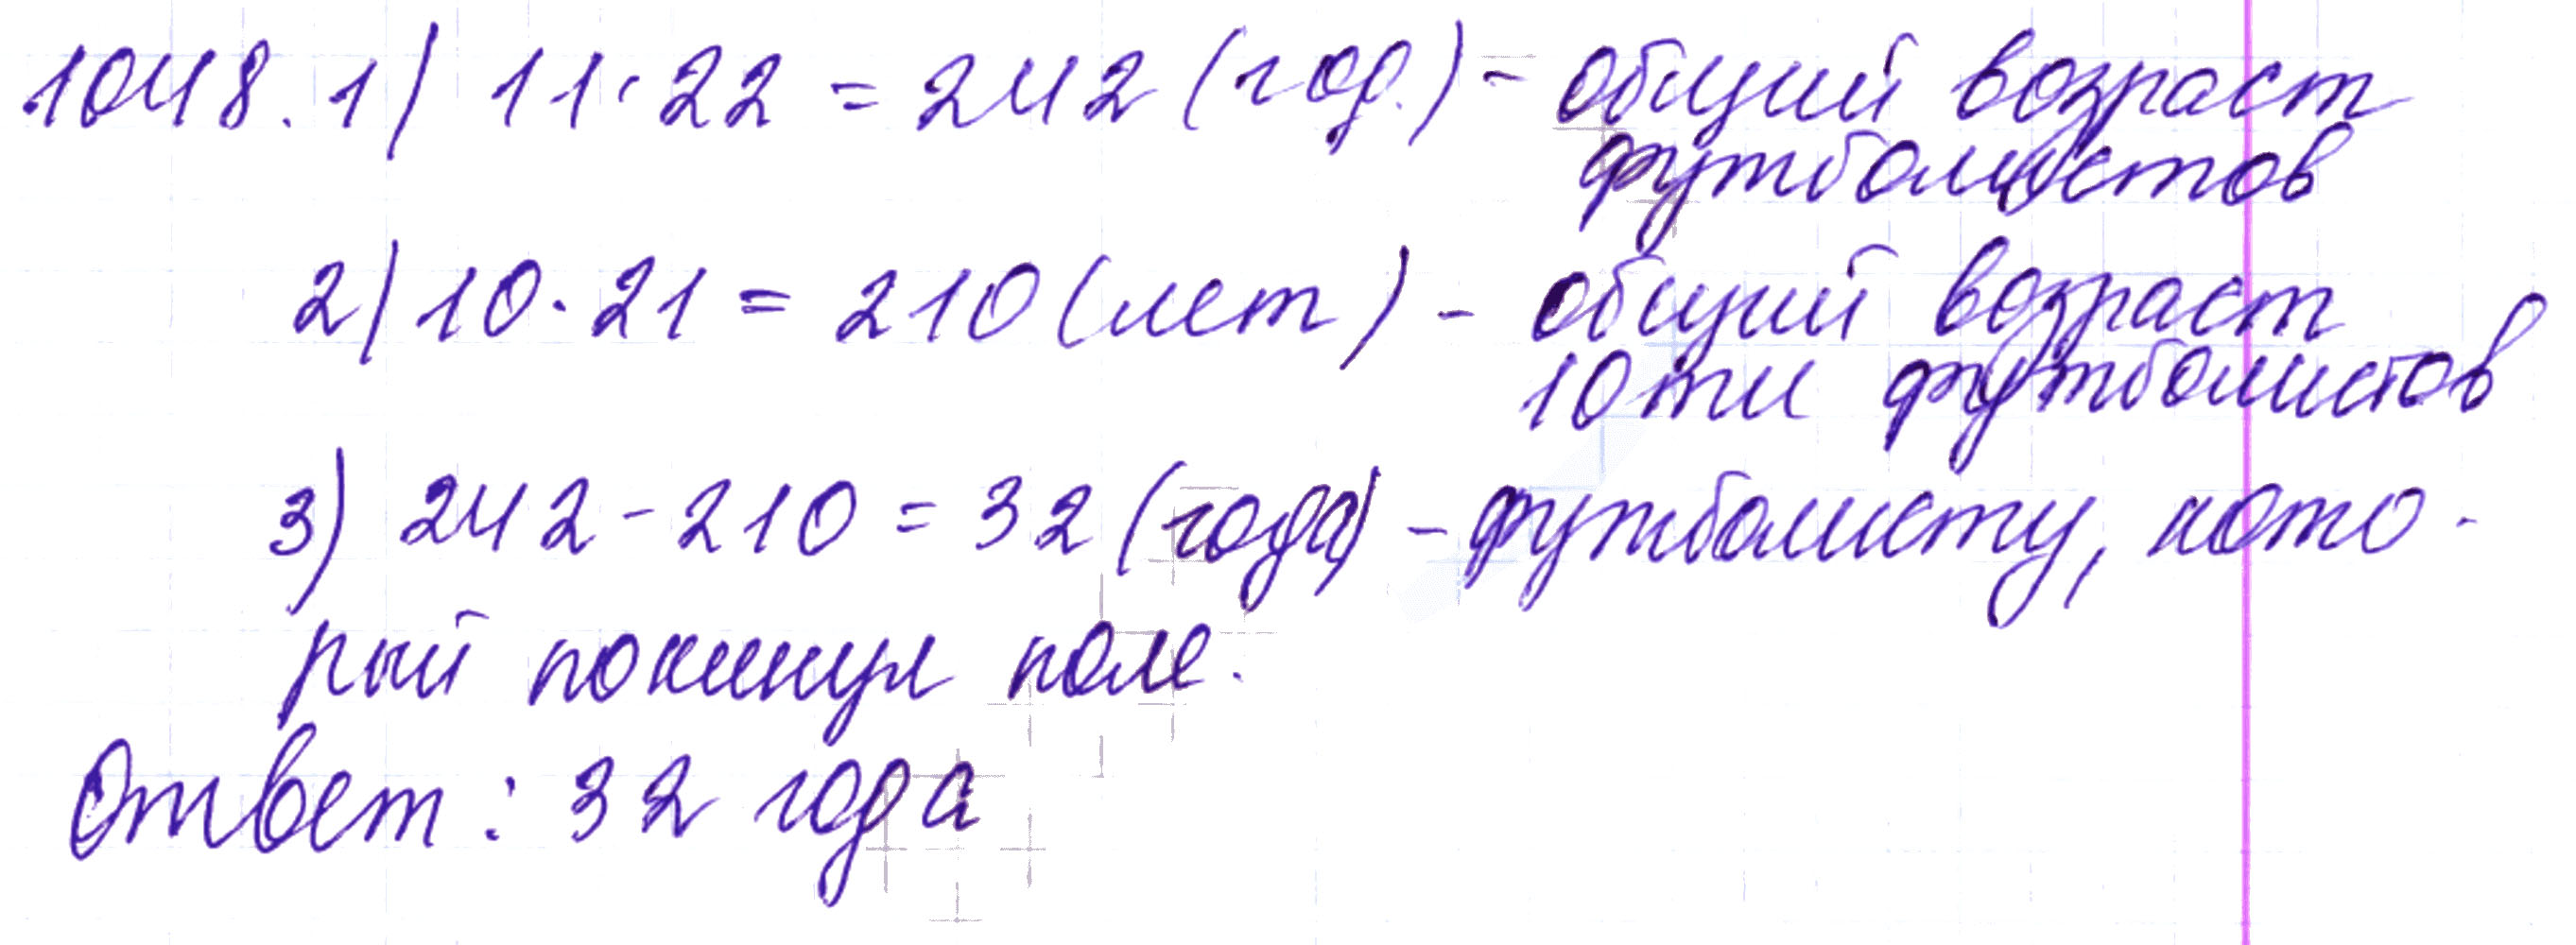 1048. 1) 11 · 22 = 242 (год.) - общий возраст
футболистов
2) 10 · 21 = 210 (лет) - общий возраст
10ти футболистов
3) 242 - 210 = 32 (года) - футболисту, кото-
рый покинул поле.
Ответ: 32 года